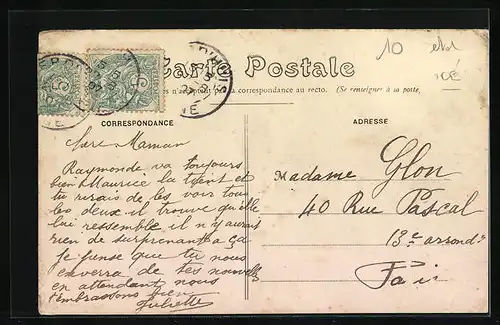 10
Carte Postale
(Se renseigner à la poste
CORRESPONDANCE
ADRESSE
Maman
Raymonde va toujours
bien Maurice la tient et
tu rirais de les voir tous
les deux il trouve qu'elle
lui ressemble il n'y aurait
rien de surprenant a ça
Je pense que tu nous
enverra de tes nouvelles
en attendant nous
t'embrassons bien
Juliette
Madame Glon
40 Rue Pascal
13e arrond
Paris